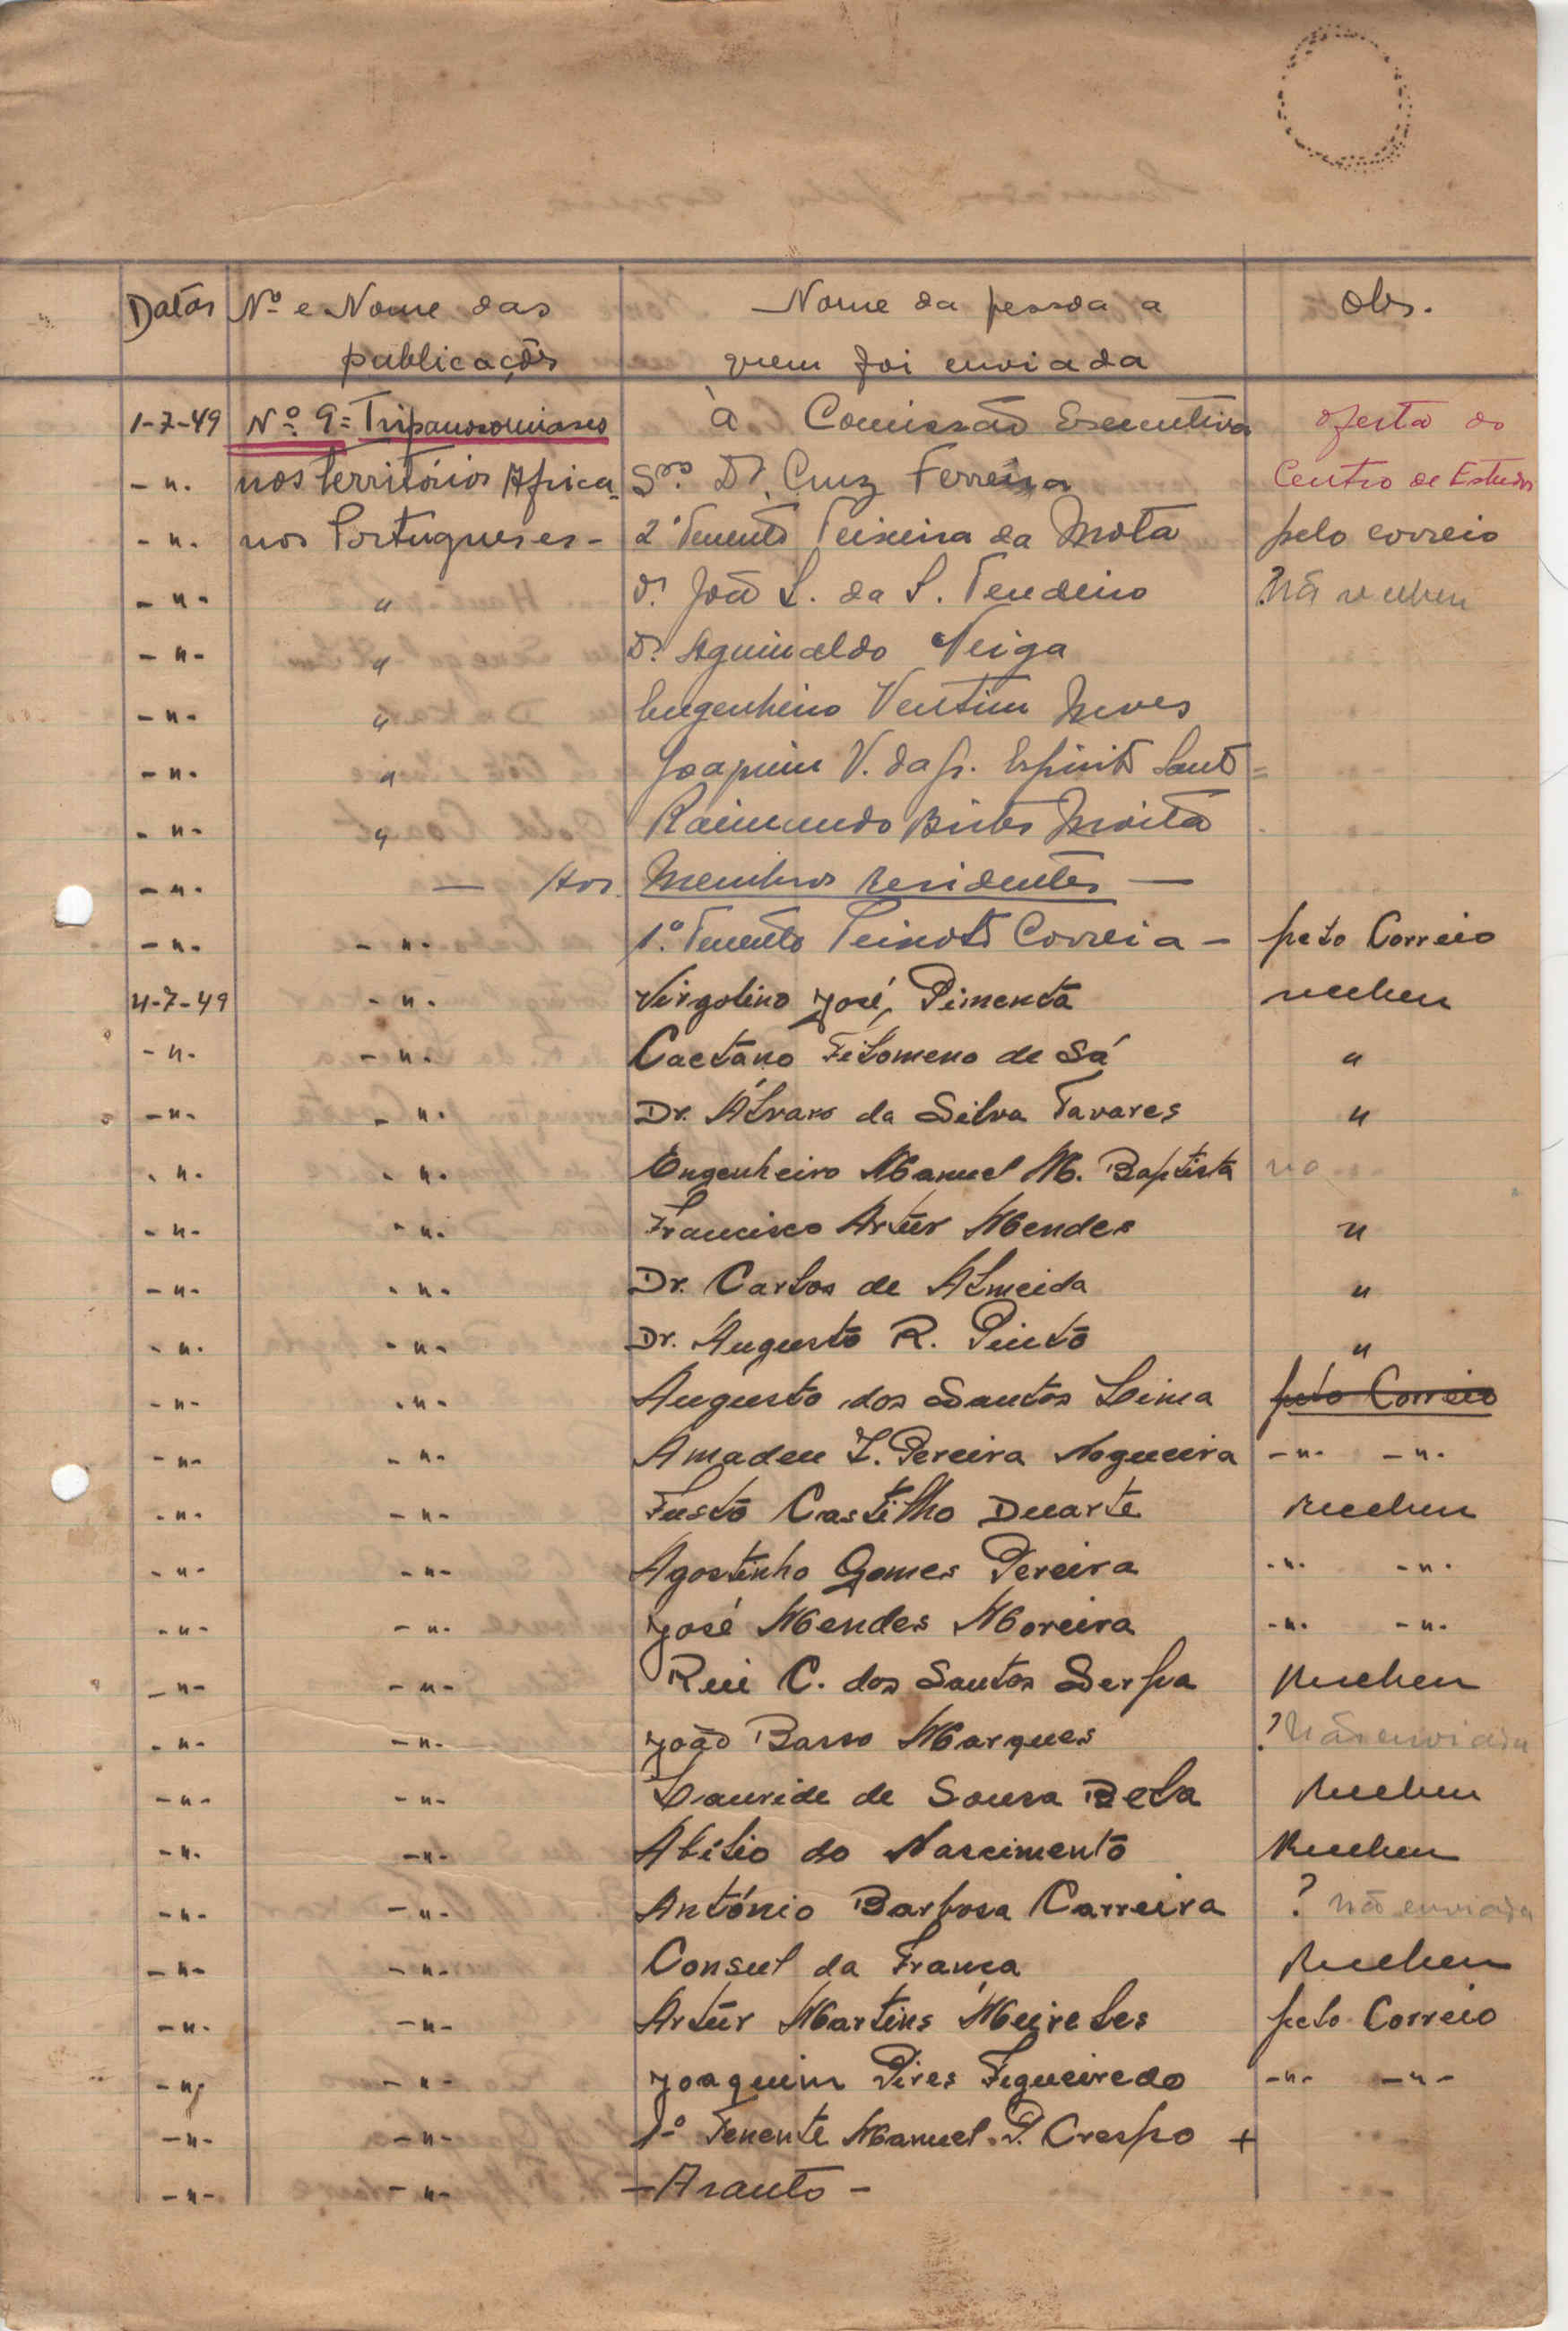 Datas Nº e Nome das Nome da pessoa a Obs.
publicações quem foi enviada
1-7-49 Nº 9= Tripanosomiases à Comissão Executiva oferta do
- ". nos territórios Africa- Snr. Dr. Cruz Ferreira Centro de Estudos
- ". nos Portugueses - 2º Tenente Teixeira da Mota pelo correio
- " - " Dr. João S. da S. Tendeiro ? não recebeu
- " - " Dr. Aguinaldo Veiga
- " - " Engenheiro Ventim Neves
- " - " Joaquim V. da Espirito Santo =
- " - " Raimundo Moita
- " - — Aos Membros Residentes —
- " - - " - 1º Tenente Peixoto Correia - pelo Correio
4-7-49 - " - Virgolino José Pimenta recebeu
- " - - " - Caetano Filomeno de Sá "
- " - - " - Dr. Álvaro da Silva Tavares "
- " - - " - Engenheiro Manuel M. Baptista
- " - - " - Francisco Artur Mendes "
- " - - " - Dr. Carlos de Almeida "
- " - - " - Dr. Augusto R. Pinto "
- " - - " - Augusto dos Santos Lima pelo Correio
- " - - " - Amadeu I. Pereira Nogueira - " - - " -
- " - - " - Fusto Castilho Duarte Recebeu
- " - - " - Agostinho Gomes Pereira - " - - " -
- " - - " - José Mendes Moreira - " - - " -
- " - - " - Rui C. dos Santos Serpa Recebeu
- " - - " - João Basso Marques ? Não enviada
- " - - " - de Sousa Bela Recebeu
- " - - " - Abílio do Nascimento Recebeu
- " - - " - António Barbosa Carreira ? não enviada
- " - - " - Consul da França Recebeu
- " - - " - Artur Martins Meireles pelo Correio
- " - - " - Joaquim Pires Figueiredo - " - - " -
- " - - " - 1º Tenente Manuel P. Crespo +
- " - - " - - Arauto -